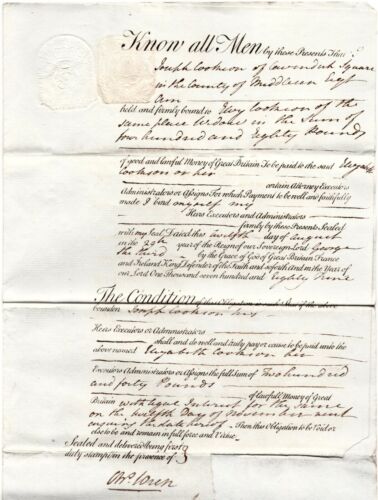 Know all Men by these Presents That I
Joseph Cookson of Cavendish Square
in the County of Middlesex Esqr
am
held and firmly bound to Eliz Cookson of the
same place Widow in the Sum of
four hundred and Eighty Pounds
of good and lawful Money of Great Britain To be paid to the said Elizabeth
Cookson or her
certain Attorney Executors
Administrators or Assigns For which Payment to be well and faithfully
made I bind myself my
Heirs Executors and Administrators
firmly by these Presents Sealed
with my Seal Dated this twelfth day of August
in the 29th year of the Reign of our Sovereign Lord George
the Third by the Grace of God of Great Britain France
and Ireland King Defender of the Faith and so forth And in the Year of
our Lord One Thousand seven hundred and Eighty Nine
The Condition of this Obligation is such That if the above
bounden Joseph Cookson his
Heirs Executors or Administrators
shall and do well and truly pay or cause to be paid unto the
above named Elizabeth Cookson her
Executors Administrators or Assigns the full Sum of Two hundred
and forty Pounds
of lawfull Money of Great
Britain with legal Interest for the same
on the twelfth Day of November next
ensuing the date hereof Then this Obligation to be Void or
else to be and remain in full force and Virtue
Sealed and delivered being first
duly stampt in the presence of
Wren